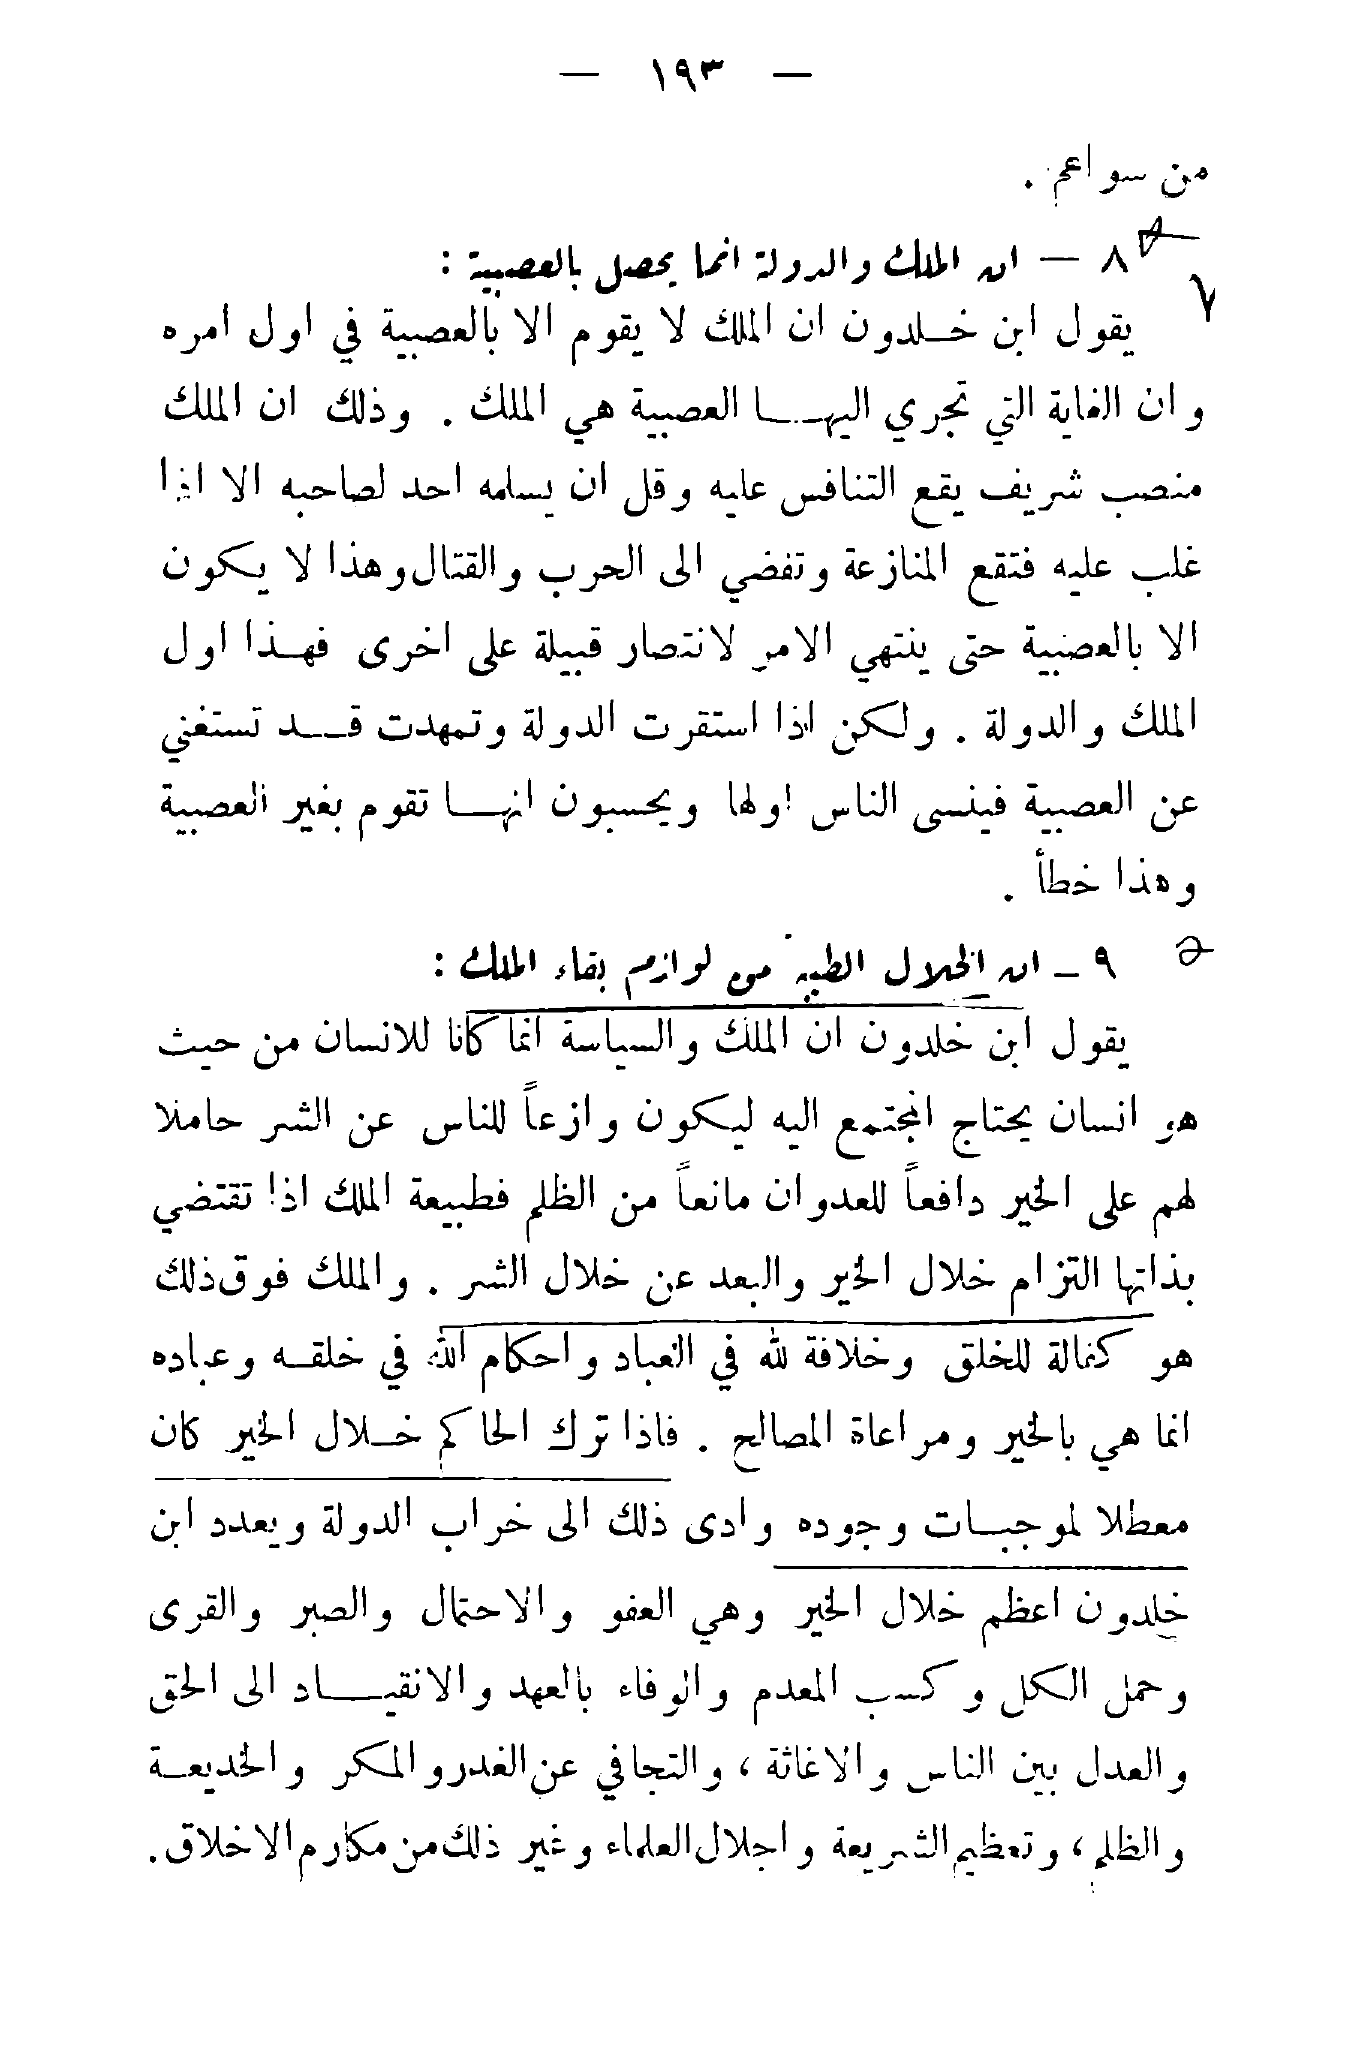 — ١٩٣ —
من سواهم .
٨ — ان الملك والدولة انما يحصل بالعصبية :
٧
يقول ابن خلدون ان الملك لا يقوم الا بالعصبية في اول امره
وان الغاية التي تجري اليها العصبية هي الملك . وذلك ان الملك
منصب شريف يقع التنافس عليه وقل ان يسلمه احد لصاحبه الا اذا
غلب عليه فتقع المنازعة وتفضي الى الحرب والقتال وهذا لا يكون
الا بالعصبية حتى ينتهي الامر لانتصار قبيلة على اخرى فهذا اول
الملك والدولة . ولكن اذا استقرت الدولة وتمهدت قد تستغني
عن العصبية فينسى الناس اولها ويحسبون انها تقوم بغير العصبية
وهذا خطأ .
٩ – ان الخلال الطيبة من لوازم بقاء الملك :
يقول ابن خلدون ان الملك والسياسة انما كانا للانسان من حيث
هو انسان يحتاج المجتمع اليه ليكون وازعاً للناس عن الشر حاملا
لهم على الخير دافعاً للعدوان مانعاً من الظلم فطبيعة الملك اذا تقتضي
بذاتها التزام خلال الخير والبعد عن خلال الشر . والملك فوق ذلك
هو كفالة للخلق وخلافة لله في العباد واحكام الله في خلقه وعباده
انما هي بالخير ومراعاة المصالح . فاذا ترك الحاكم خلال الخير كان
معطلا لموجبات وجوده وادى ذلك الى خراب الدولة ويعدد ابن
خلدون اعظم خلال الخير وهي العفو والاحتمال والصبر والقرى
وحمل الكل وكسب المعدم والوفاء بالعهد والانقياد الى الحق
والعدل بين الناس والاغاثة ، والتجافي عن الغدر والمكر والخديعة
والظلم ، وتعظيم الشريعة واجلال العلماء وغير ذلك من مكارم الاخلاق .